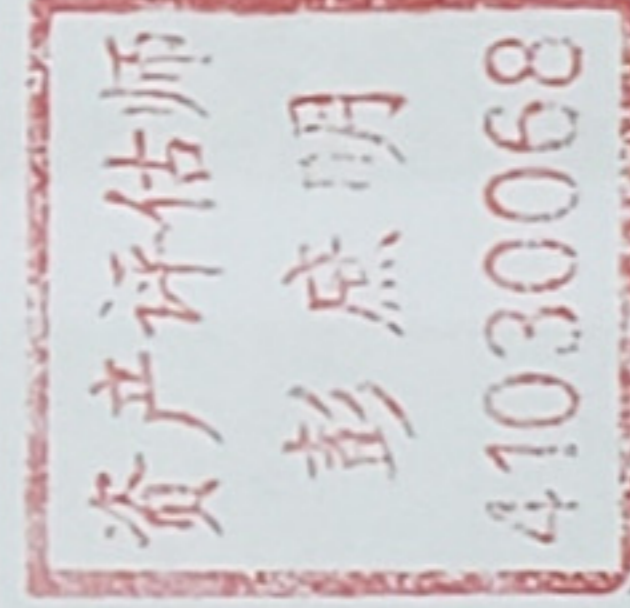 资产评估师
彭点明
41030068